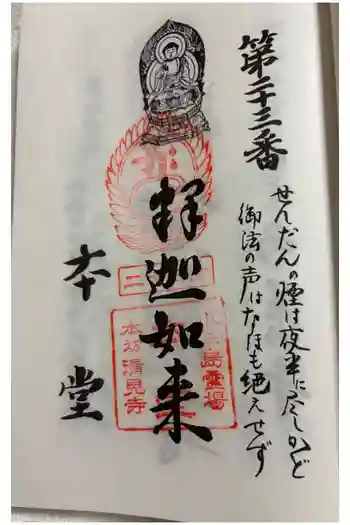 第二十三番
せんだんの煙は夜半に尽しかど
御法の声はなほも絶えせず
釋迦如来
本堂
島霊場
本坊清見寺